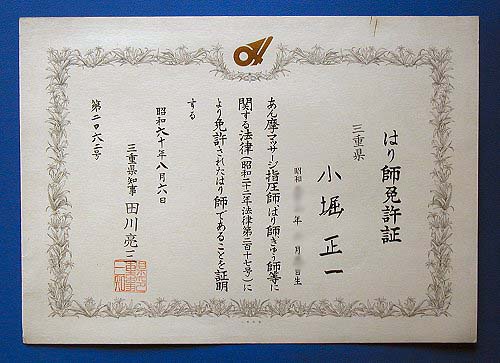 はり師免許証
三重県
小堀正一
昭和 年 月 日生
あん摩マッサージ指圧師、はり師、きゅう師等に
関する法律(昭和二十二年法律第二百十七号)に
より免許されたはり師であることを証明
する
昭和六十年八月六日
三重県知事 田川亮三
第二〇六二号